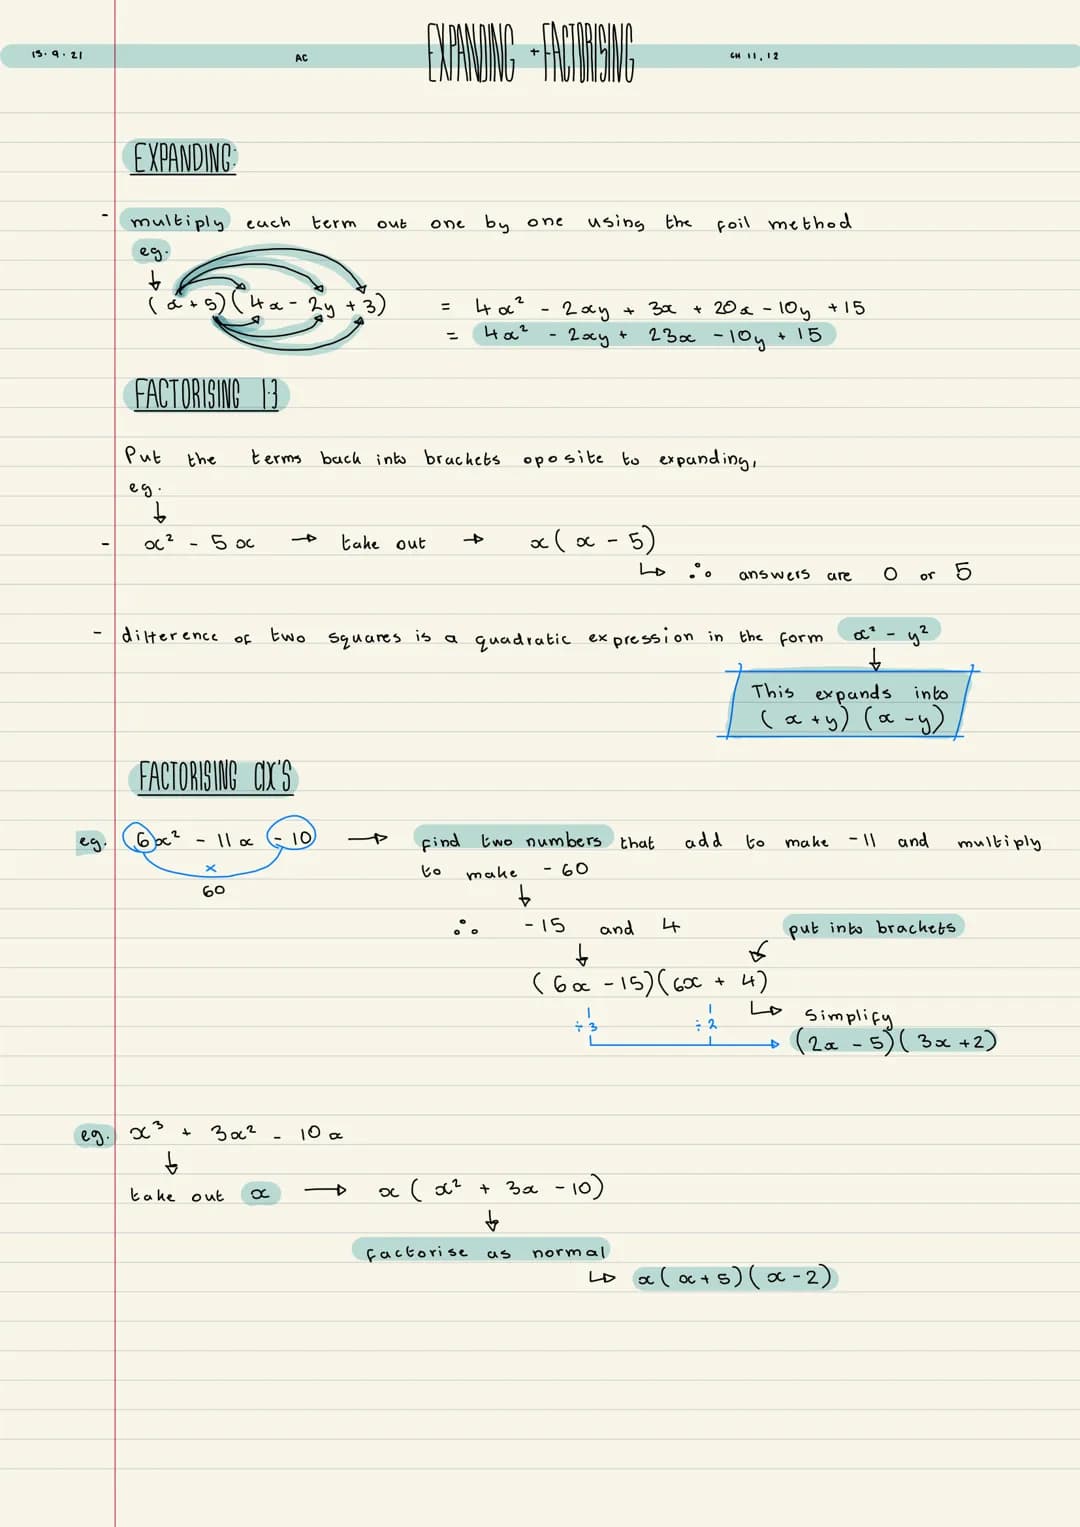 15.9.21 AC EXPANDING + FACTORISING CH 11, 12
EXPANDING:
- multiply each term out one by one using the foil method
eg.
(x + 5)(4x - 2y + 3) = 4x² - 2xy + 3x + 20x - 10y + 15
= 4x² - 2xy + 23x - 10y + 15
FACTORISING 1:3
Put the terms back into brackets oposite to expanding,
eg.
- x² - 5x → take out → x(x - 5)
↳ ∴ answers are 0 or 5
- difference of two squares is a quadratic expression in the form x² - y²
This expands into
(x + y)(x - y)
FACTORISING ax's
eg. 6x² - 11x - 10 → find two numbers that add to make -11 and multiply
×
60
to make - 60
∴ -15 and 4 put into brackets
(6x - 15)(6x + 4)
÷3 ÷2 ↳ Simplify
(2x - 5)(3x + 2)
eg. x³ + 3x² - 10x
take out x → x(x² + 3x - 10)
factorise as normal
↳ x(x + 5)(x - 2)